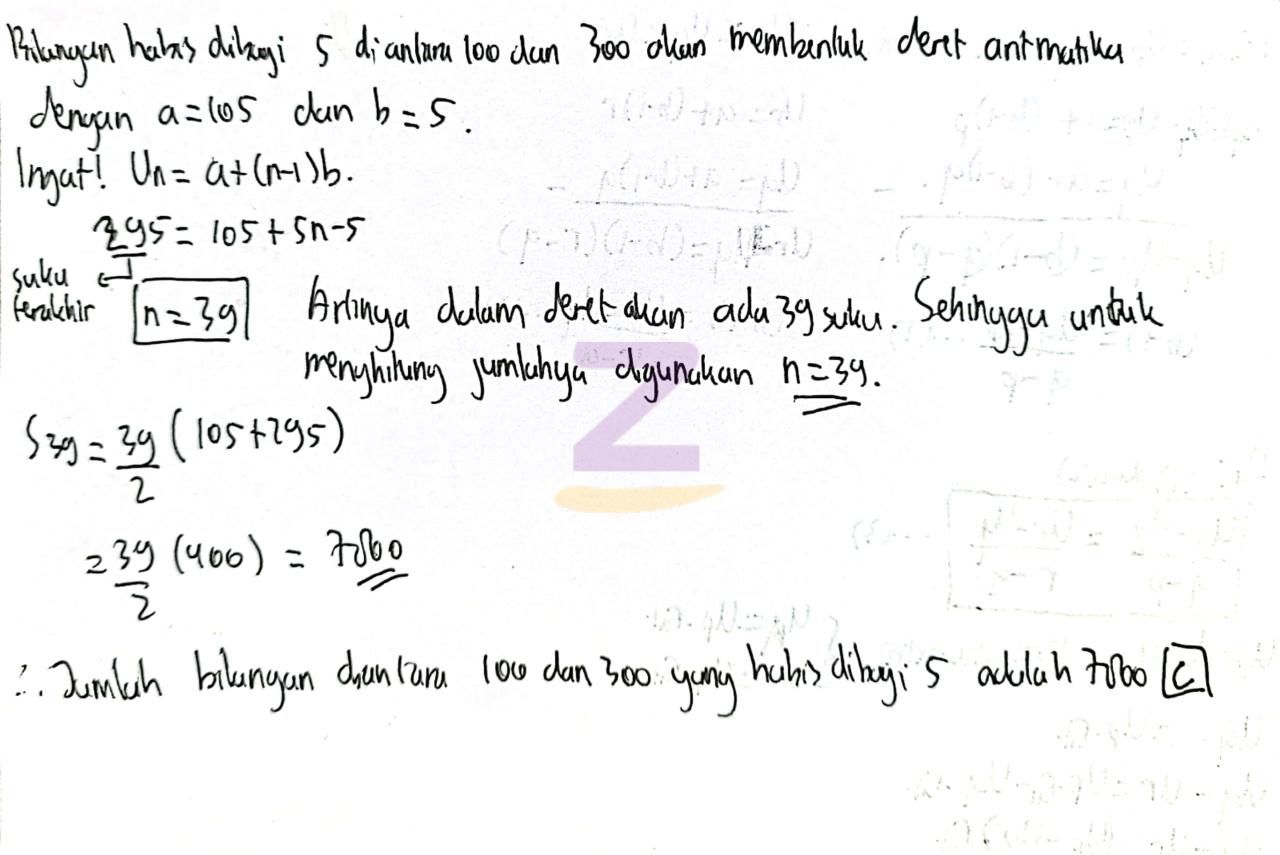 Bilangan habis dibagi 5 diantara 100 dan 300 akan membentuk deret aritmatika
dengan a=105 dan b=5.
Ingat! Un = a+(n-1)b.
295 = 105+5n-5
suku terakhir
n=39
Artinya dalam deret akan ada 39 suku. Sehingga untuk
menghitung jumlahya digunakan n=39.
S39 = 39/2 (105+295)
= 39/2 (400) = 7800
∴ Jumlah bilangan diantara 100 dan 300 yang habis dibagi 5 adalah 7800 C
Z